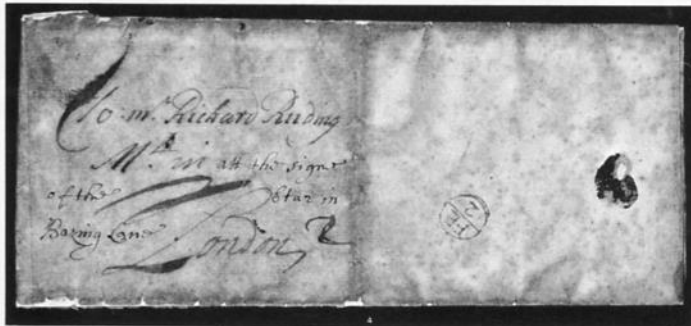 To mr Richard Ruding
Mrt in att the signe
of the Star in
Basing Lane
London 2
FE
2
4